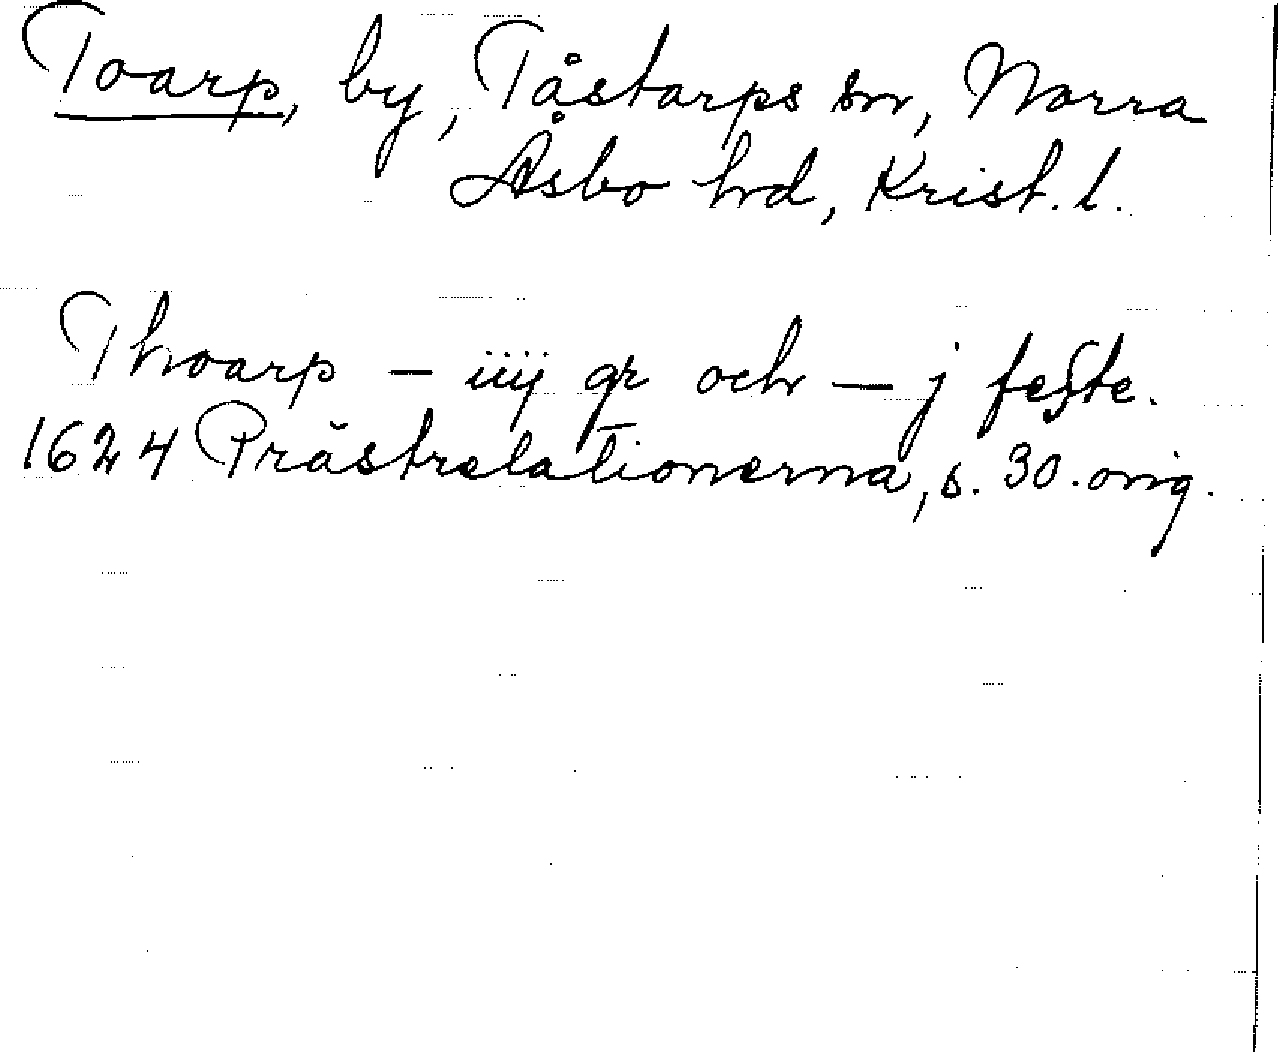 Toarp, by, Tåstarps sn, Norra
Åsbo hrd, Krist. l.
Thoarp – iiij gr och – j feste.
1624 Prästrelationerna, s. 30. orig.